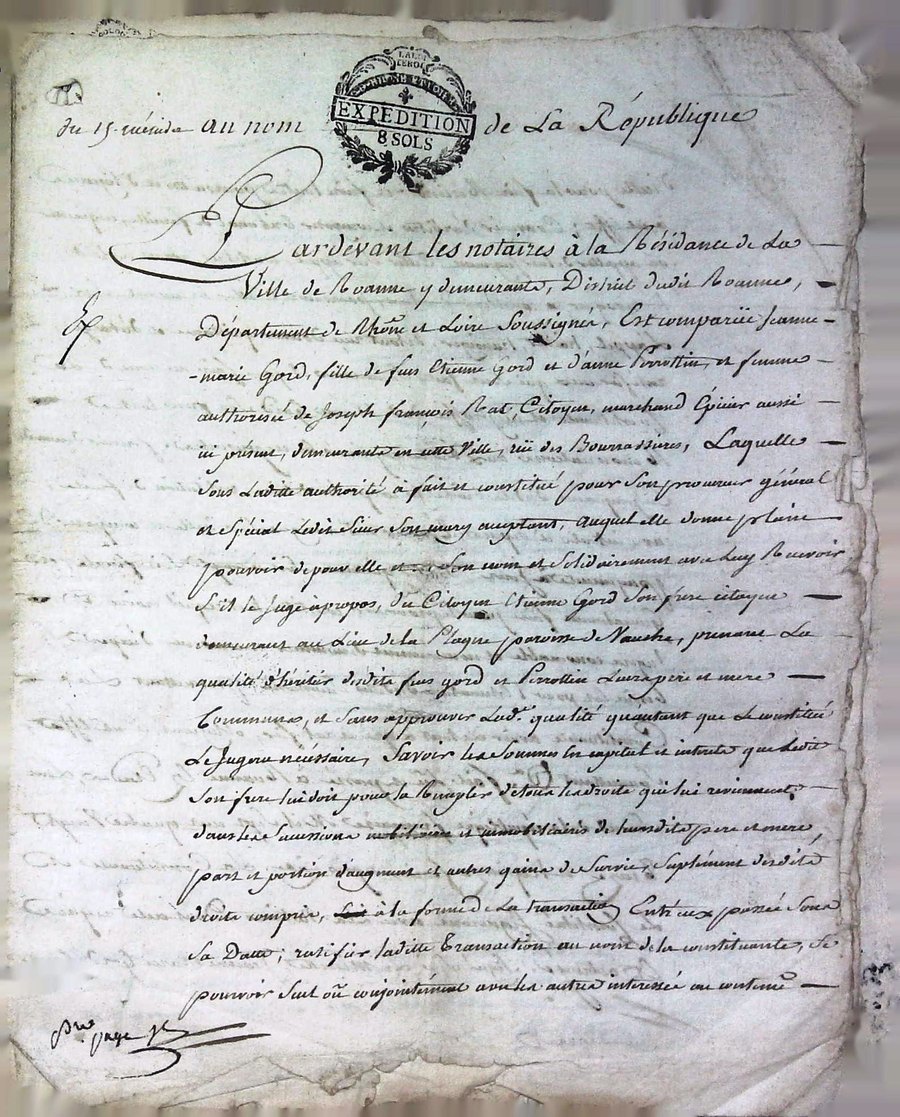 EXPEDITION
8 SOLS
du 15 au nom de La République
Pardevant les notaires à la Résidence de La
Ville de Roanne y demeurants, District dudit Roanne,
Département de Rhône et Loire Soussignés, Est comparüe Jeanne-
-marie Gord, fille de feus Etienne Gord et d'anne Perrottin, et femme
authorisée de Joseph françois Rat, Citoyen, marchand Epicier aussi
ici présent, demeurants en cette Ville, rüe des Bourrassières, Laquelle
sous Laditte authorité à fait et constitué pour Son procureur général
et Spécial Ledit Sieur Son mary acceptant, auquel elle donne plaine
pouvoir de pour elle et en Son nom et Solidairement avec Luy Recevoir
S'il le Juge àpropos, du Citoyen Etienne Gord Son frère citoyen
demeurant au Lieu de la Plagne paroisse de Vauche, prenant La
qualité d'héritier desdits feus gord et Perrottin Leurs père et mere
Communs, et Sans approuver Lad. qualité qu'autant que Le constitué
Le Jugera nécessaire, Savoir les Sommes En capital et interets que Ledit
Son frere lui doit pour la Remplir de tous les droits qui lui reviennent
dans les Sucessions mobiliaires et immobiliaires de leursdits pere et mere,
part et portion d'augment et autres gains de Survie, Suplément desdits
droits compris, à la forme de La transaction Entr'eux passée Sous
Sa Datte; ratifier laditte Transaction au nom de la constituante, Se
pourvoir Seul où conjointement avec les autres interessés au contenu
pre page